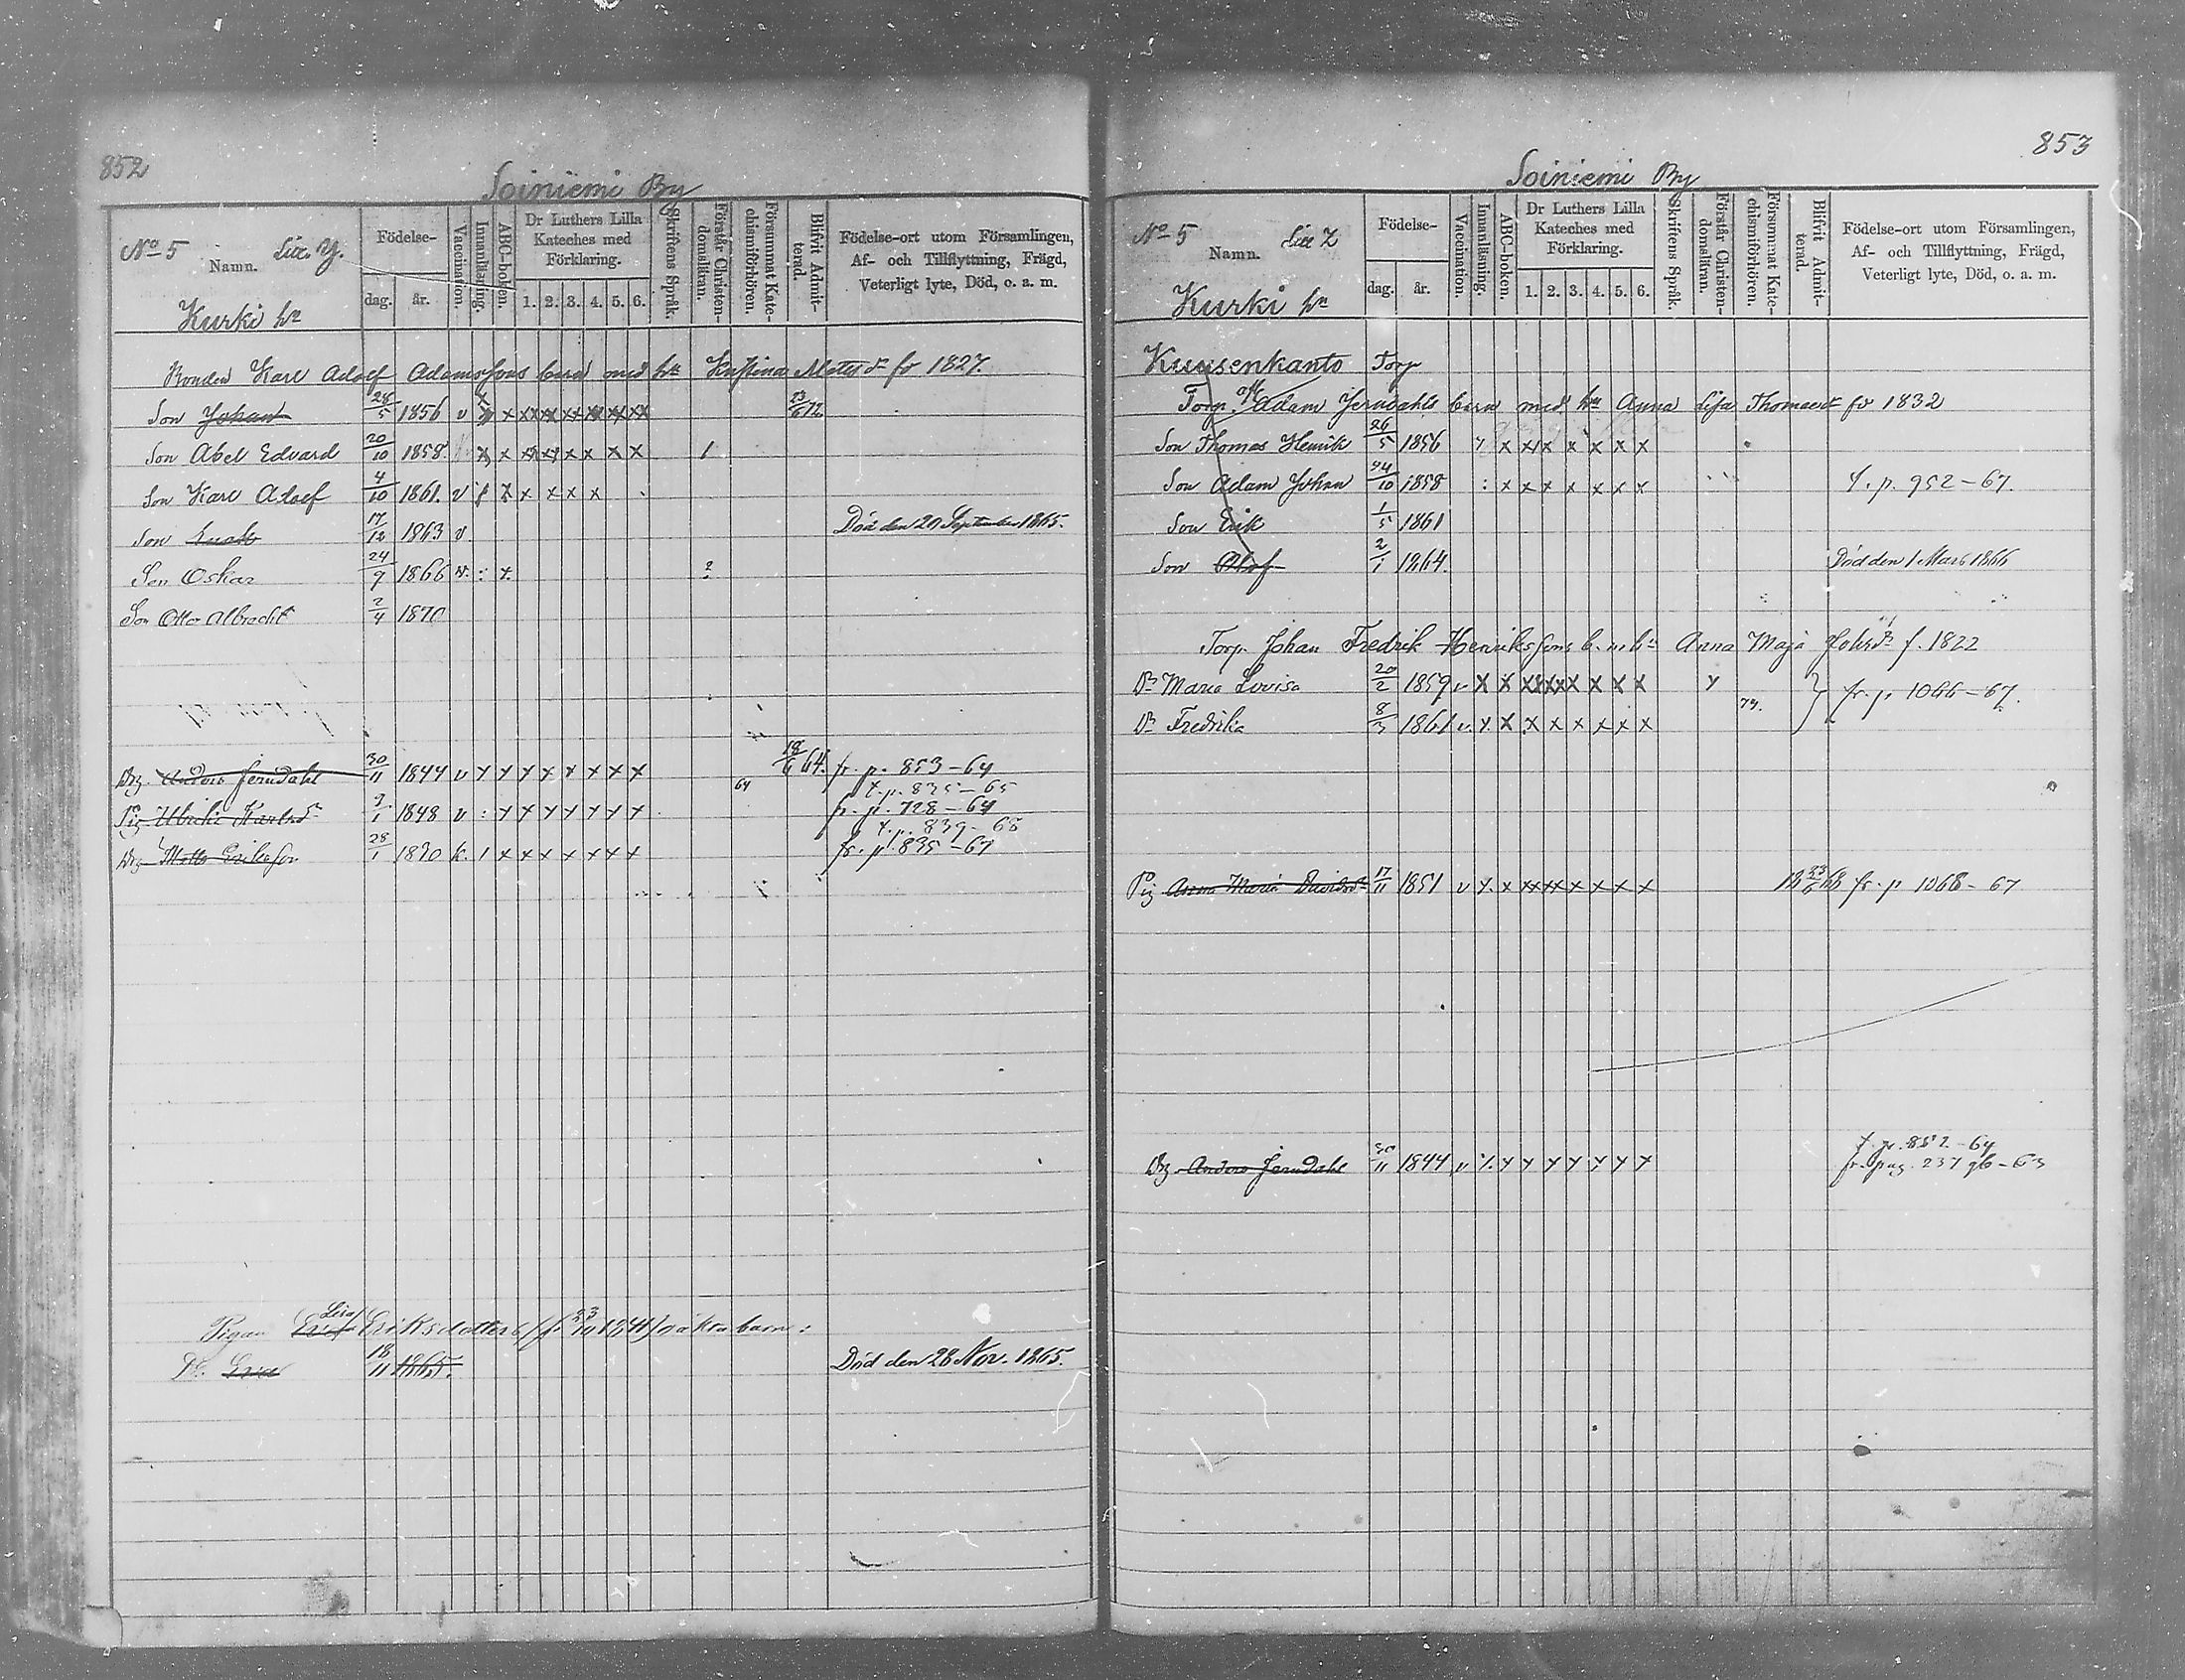 852
Soiniemi By
No 5 Litt. Y.
Namn.
Kurki hn
Födelse-
dag. år.
Vaccination.
Innanläsning.
ABC-boken.
Dr Luthers Lilla
Kateches med
Förklaring.
1. 2. 3. 4. 5. 6.
Skriftens Språk.
Förstår Christen-
domsläran.
Försummat Kate-
chismiförhören.
Blifvit Admit-
terad.
Födelse-ort utom Församlingen,
Af- och Tillflyttning, Frägd,
Veterligt lyte, Död, o. a. m.
Bonden Karl Adolf Adamssons barn med hu Kristina Matsdr fö 1827.
Son Johan 28/5 1856 v x x x x x x x x 23/6 72
Son Abel Edvard 20/10 1858 x x x x x x x x 1
Son Karl Adolf 4/10 1861. v x x x x x
Son 17/12 1863 v Död den 20 September 1865.
Son Oskar 24/9 1866 v. : x
Son Otto Albrecht 2/4 1870
Drg. Anders Jerndahl 30/11 1844 v x x x x x x x x 18/6 64. fr. p. 853-64
64 t. p. 835-65
Pig. Ulrika Karlsdr 1848 v : x x x x x x x fr. p. 728-64
t. p. 839-65
Drg Matts Eriksson 28/1 k. 1 x x x x x x x fr. p. 835-67
Lisa
Pigan Eriksdotters oäkta barn:
Dr. Eva 18/11 1865. Död den 28 Nov. 1865.
853
Soiniemi By
No 5 Litt Z
Namn.
Kurki hn
Födelse-
dag. år.
Vaccination.
Innanläsning.
ABC-boken.
Dr Luthers Lilla
Kateches med
Förklaring.
1. 2. 3. 4. 5. 6.
Skriftens Språk.
Förstår Christen-
domsläran.
Försummat Kate-
chismiförhören.
Blifvit Admit-
terad.
Födelse-ort utom Församlingen,
Af- och Tillflyttning, Frägd,
Veterligt lyte, Död, o. a. m.
Kuusenkanto Torp
Torp. Adam Jerndahls barn med hu Anna Lisa Thomasdr fö 1832
Son Thomas Henrik 26/5 1856 x x x x x x x
Son Adam Johan 24/10 1858 : x x x x x x x t. p. 952-67.
Son Erik 1/5 1861
Son Olof 2/1 1864. Död den 1 Mars 1866
Torp. Johan Fredrik Henrikssons b. m. hu Anna Maja Johsdr f. 1822
Dr Maria Lovisa 20/2 1859 v x x x x x x x x fr. p. 1066-67.
74.
Dr Fredrika 8/3 1861 v. x x x x x x x x
Pig Anna Maria Davidsdr 17/11 1851 v x x x x x x x fr. p 1068-67
t. p. 852-64
Drg Anders Jerndahl 30/11 1844 v x x x x x x x fr. pag. 237 gb-63